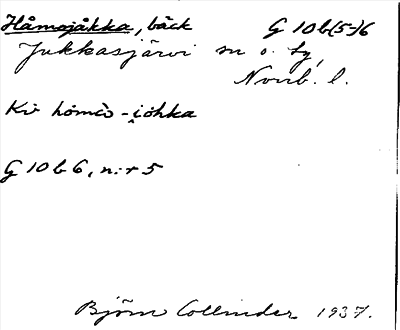 Håmojåkka, bäck G 10 b(5-)6
Jukkasjärvi sn o. tg,
Norrb. l.
Ki hömò-i̯öhka
G 10 b 6, n:r 5
Björn Collinder 1937.